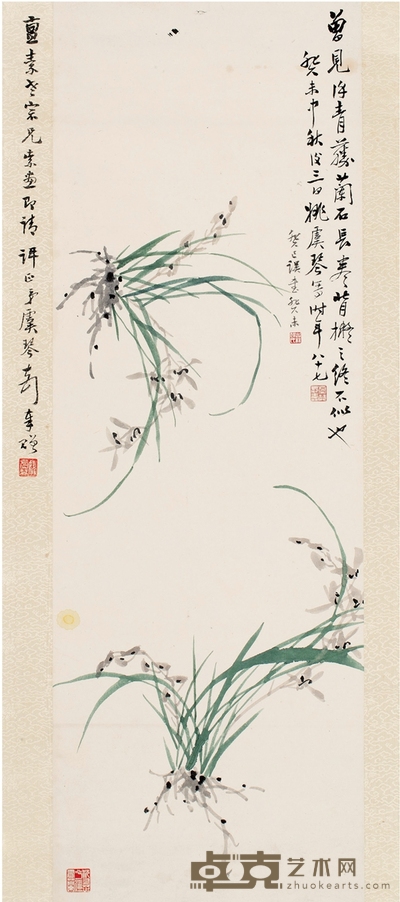 曾見徐青藤蘭石長卷背擬之終不似也
癸未中秋後三日姚虞琴寫時年八十七
癸巳誤書癸未
亶素老宗兄索畫即請評正弟虞琴
卓克艺术网
zhuokearts.com